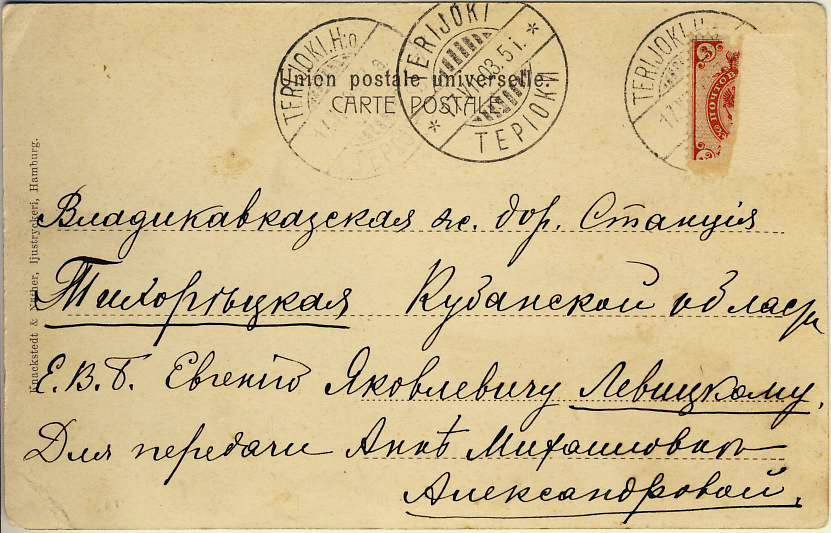 TERIJOKI.H:o
TERIJOKI
ТЕРІОКИ
TERIJOKI.H
Union postale universelle.
CARTE POSTALE.
3
Knackstedt & Näther, ljustryckeri, Hamburg.
Владикавказская ж. дор. Станція
Тихорѣцкая Кубанской област
Е. В. Б. Евгенію Яковлевичу Левицкому,
Для передачи Аннѣ Михаиловнѣ
Александровой,